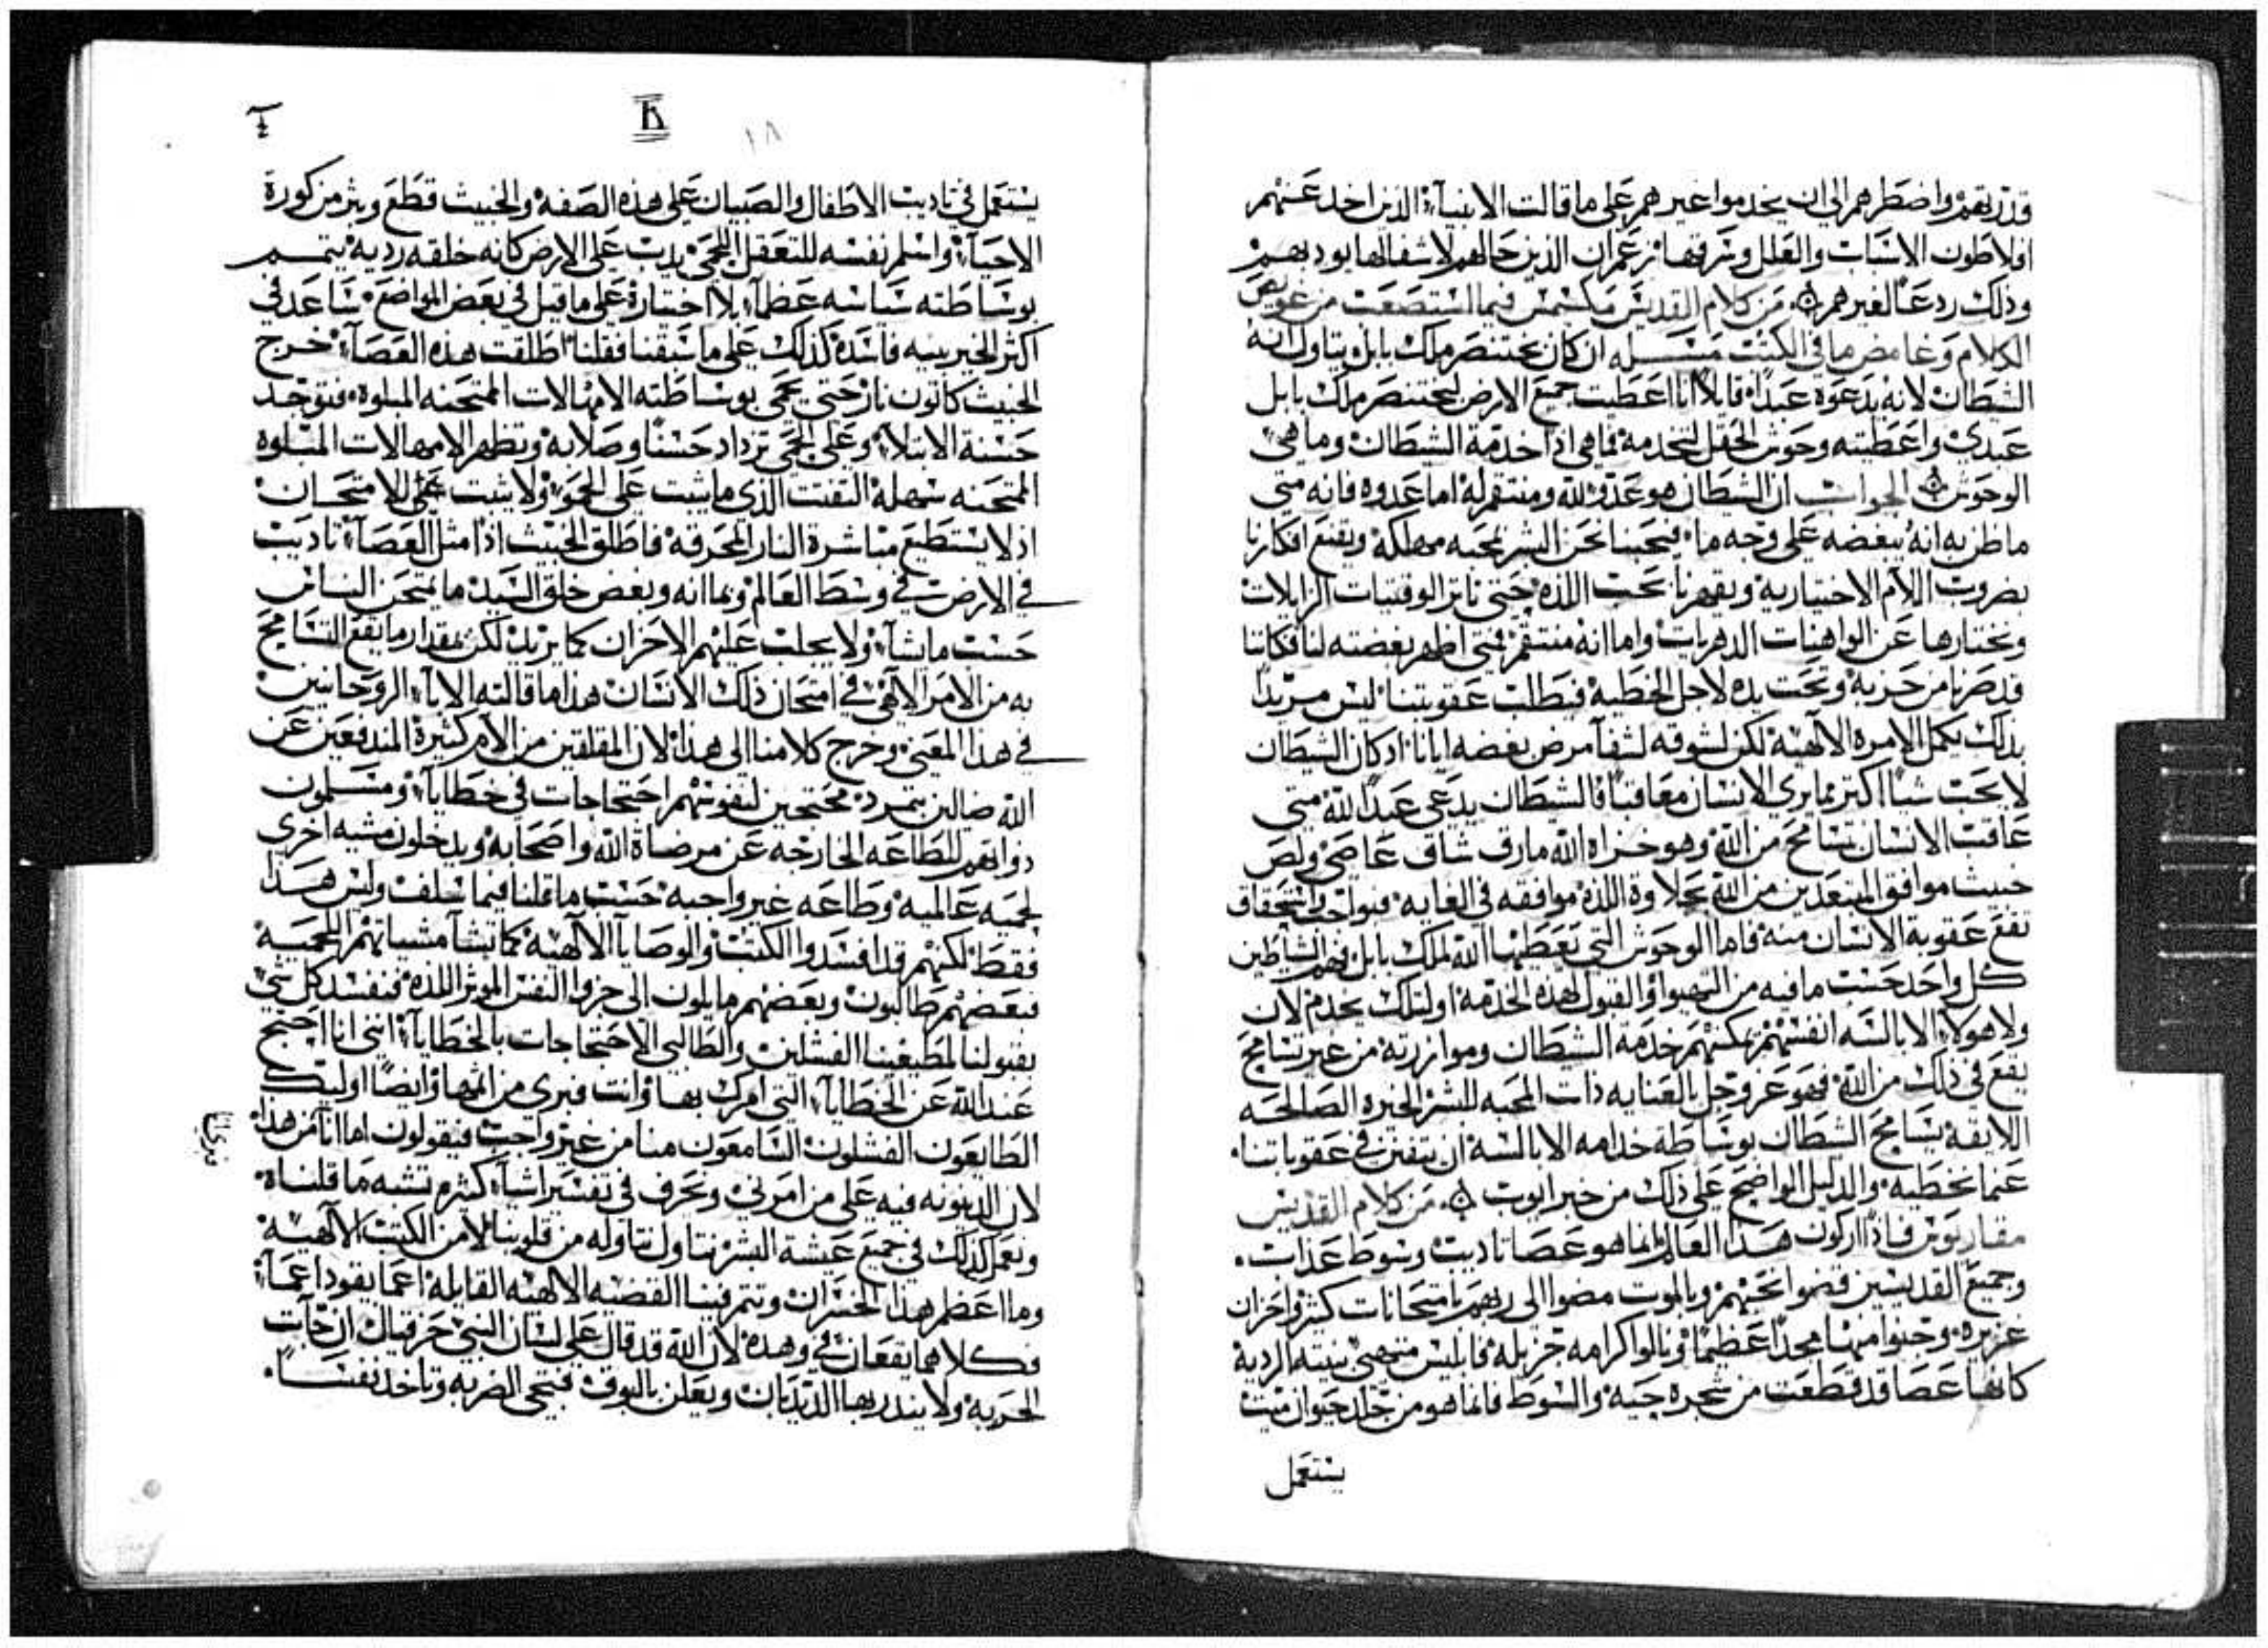 قدرتهم واضطرهم الى ان يخدموا غيرهم على ما قالت الانبياء الذين اخد عنهم
افلاطون الاسباب والعلل وشرفها زعم ان الذين حالهم لا شفا لها يودبهم
وذلك ردعًا لغيرهم من كلام القديس مكسمس فيما استصعب من عويص
الكلام وغامض ما في الكتب مسله ان كان بختنصر ملك بابل يتاول انه
الشيطان لانه يدعوه عبدًا قايلًا انا اعطيت جميع الارض لبختنصر ملك بابل
عبدي واعطيته وحوش الحقل لتخدمه فما هي اذًا خدمة الشيطان وما هي
الوحوش الجواب ان الشيطان هو عدو لله ومنتقم له اما عدوه فانه متى
ما ظن به انه يبغضه على وجه ما فيحبنا نحن البشر لمحبه مهلكه ويقنع افكارنا
بضروب الالام الاختياريه ويقهرنا تحت اللذه حتى ناثر الوقتيات الزايلات
ونختارها عن الدهريات واما انه منتقم فمتى اظهر بغضته لنا فكاننا
قد صرنا من حزبه وتحت يده لاجل الخطيه فيطلب عقوبتنا ليس مريدًا
بذلك يكمل الامره الالهيه لكن لشوقه لشفا مرض بغضه ايانا اذ كان الشيطان
لا يحب شيا اكتر مما يرى الانسان معاقبًا فالشيطان يدعى عبدًا لله متى
عاقب الانسان بتسامح من الله وهو خزاه الله مارق شاق عاصي ولص
خبيث موافق المبتعدين من الله بحلاوة اللذه موافقه في الغايه فبواجب استحقاق
تقع عقوبة الانسان منه فاما الوحوش التي يعطيها الله لملك بابل فهم الشياطين
كل واحد حسب ما فيه من التهيوا والقبول لهذه الخدمه اوليك يخدم لان
ولا هولاء الابالسه انفسهم يمكنهم خدمة الشيطان وموازرته من غير تسامح
يقع في ذلك من الله فهو عز وجل بالعنايه ذات المحبه للبشر الخيره الصالحه
اللايقه يسامح الشيطان بوساطة خدامه الابالسه ان يتفنن في عقوباتنا
عما نخطيه والدليل الواضح على ذلك من خبر ايوب من كلام القديس
مقاريوس فاذًا اركون هذا العالم انما هو عصا تاديب وسوط عذاب
وجميع القديسين قضوا نحبهم وبالموت مضوا الى ربهم بامتحانات كثيره واحزان
غزيره وجنوا منها مجدًا عظيمًا ونالوا كرامه جزيله فابليس بنيته الرديه
كانها عصا قد قطعت من شجره حيه والسوط فانما هو من جلد حيوان ميت
يستعمل
K
١٨
يستعمل في تاديب الاطفال والصبيان على هذه الصفه والخبيث قطع من كورة
الاحياء واسلم نفسه للتعقل اللحمي يدب على الارض كانه خلقه رديه يتمم
بوساطته سياسه عظماء بلا اختياره على ما قيل في بعض المواضع ساعد في
اكثر الخير بنيه فاسده كذلك على ما سبقنا فقلنا اطلقت هذه العصاء خرج
الخبيث كاتون نار حتى يحمى بوساطته الامهالات الممتحنه المبلوه فتوجد
حسنة الابتلاء وعلى الحمى تزداد حسنًا وصلابه وتظهر الامهالات المبلوه
الممتحنه سهلة التفتت الذي ما يثبت على الحمو ولا يثبت على الامتحان
اذ لا يستطيع مباشرة النار المحرقه فاطلق الخبيث اذًا مثل العصاء تاديب
في الارض في وسط العالم وبما انه وبعض خلق السيد ما يمتحن الناس
حسب ما يشاء ولا يجلب عليهم الاحزان كما يريد لكن بمقدار ما يقع التسامح
به من الامر الالهي في امتحان ذلك الانسان هذا ما قالته الاباء الروحانيين
في هذا المعنى وخرج كلامنا الى هذا لان المقلقين من الام كثيرة المندفعين عن
الله ضالين بتمرد محتجين لنفوسهم احتجاجات في خطاياء ومسلمون
ذواتهم للطاعه الخارجه عن مرضاة الله واصحابه ويدخلون مشيه اخرى
لحميه عالميه وطاعه غير واجبه حسب ما قلنا فيما سلف وليس هذا
فقط لكنهم قد افسدوا الكتب والوصايا الالهيه كما تشا مشياتهم اللحميه
فبعضهم طالبون وبعضهم مايلون الى جزوا النفس الموثر اللذه فنفسد كل شي
بقبولنا لمطيعينا الفشلين والطالبي الاحتجاجات بالخطاياء انني انا احتج
عند الله عن الخطاياء التي امرك بها وانت فبرى من اثمها وايضًا اوليك
الطايعون الفشلون السامعون منا من غير واجب فيقولون اما انا من هذا
لان الدينونه فيه على من امرني ونحرف في تفسير اشياء كثيره تشبه ما قلناه
ونعمل كذلك في جميع عيشة البشر نتاول نتاوله من قلوبنا لا من الكتب الالهيه
وما اعظم هذا الخسران وتتم فينا القضيه الالهيه القايله اعما يقود اعماء
فكلاهما يقعان في وهده لان الله قد قال على لسان النبي حزقيال ان جات
الحربه ولا ينذر بها الديدبان ويعلن بالبوق فتجي الضربه وتاخذ نفسًا